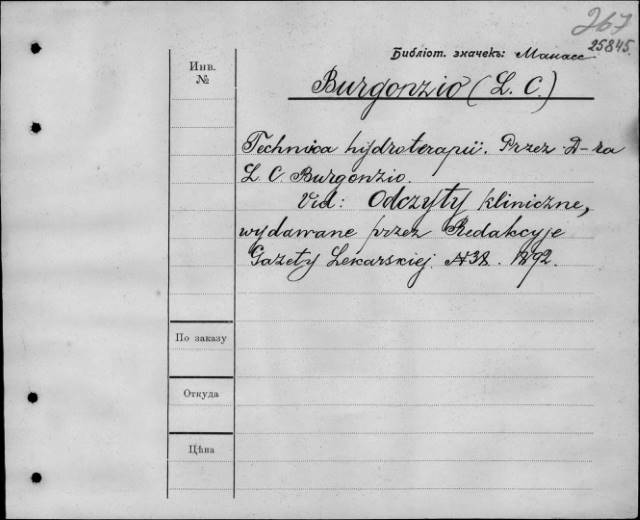 267
25845.
Библіот. значекъ: Манасс
Инв.
№
Burgonzio (L. C.)
Technika hydroterapii. Przez D-ra
L. C. Burgonzio.
Vid: Odczyty kliniczne,
wydawane przez Redakcyje
Gazety Lekarskiej. N38. 1892.
По заказу
Откуда
Цѣна